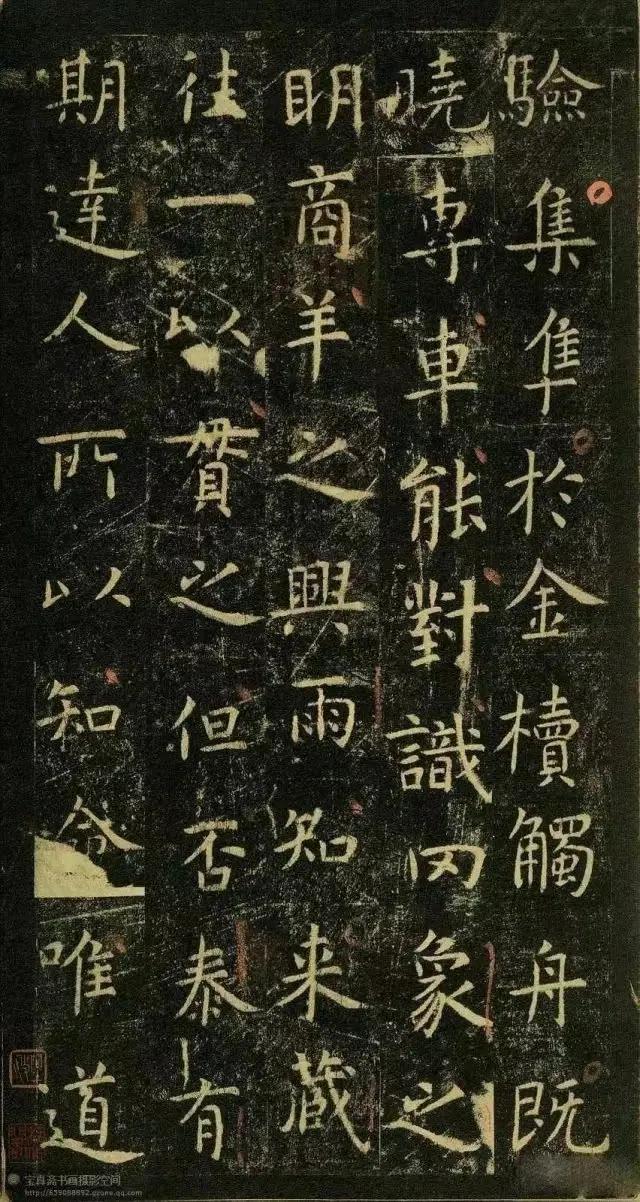 驗集隼於金櫝觸舟既
曉專車能對識罔象之
明商羊之興雨知来藏
往一以貫之但否泰有
期達人所以知命唯道
宝真斋书画摄影空间
http://659088892.qzone.qq.com